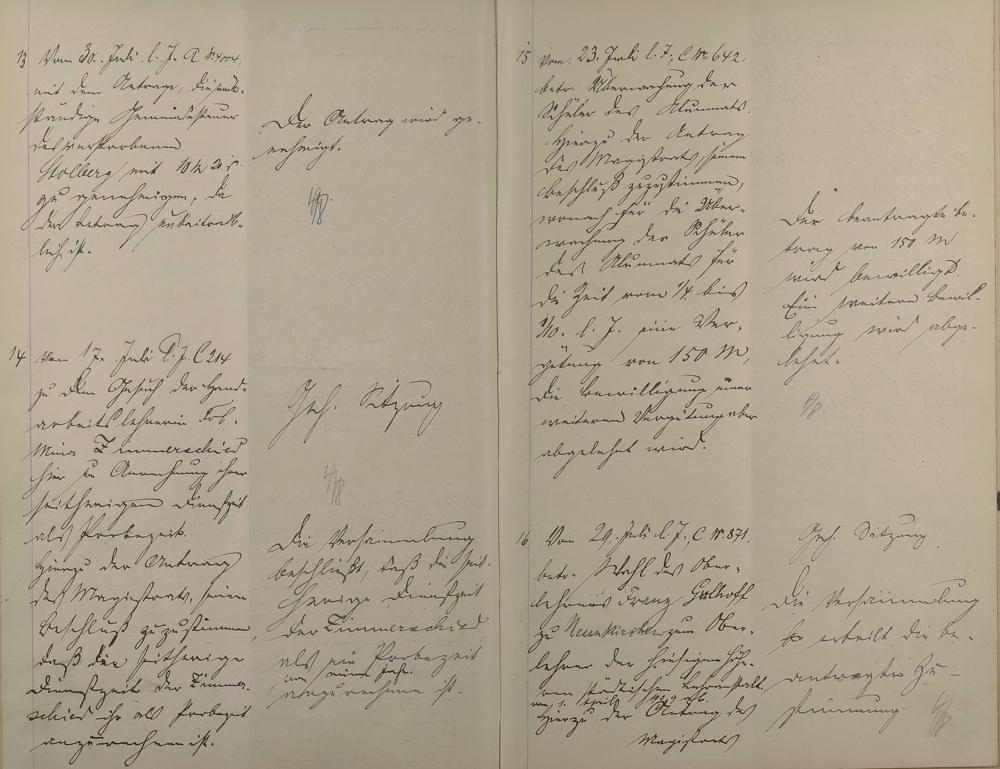 13 Vom 30. Juli l. J. A № 4004,
mit dem Antrage, die rück-
ständige Gemeindesteuer
des verstorbenen
Stolberg mit 10 M 20 ₰
zu genehmigen, da
der Betrag unbeitreib-
lich ist.
Der Antrag wird ge-
nehmigt.
4/8
14 Vom 17. Juli l. J. C 214
zu dem Gesuch der Hand-
arbeitslehrerin Frl.
Mina Zimmerschied
hier um Anrechnung ihrer
seitherigen Dienstzeit
als Probezeit.
Hierzu der Antrag
des Magistrats, seinem
Beschluß zuzustimmen,
daß die seitherige
Dienstzeit der Zimmer-
schied ihr als Probezeit
anzurechnen ist.
Geh. Sitzung
4/8
Die Versammlung
beschließt, daß die seit-
herige Dienstzeit
der Zimmerschied
als Probezeit
anzurechnen ist.
15 Vom 23. Juli l. J., C № 642,
betr. Überwachung der
Schüler des Alumnats.
Hierzu der Antrag
des Magistrats, seinem
Beschluß zuzustimmen,
wonach für die Über-
wachung der Schüler
des Alumnats für
die Zeit vom 1/4 bis
1/10. l. J. eine Ver-
gütung von 150 M,
die Bewilligung einer
weiteren Vergütung aber
abgelehnt wird.
Der beantragte Be-
trag von 150 M
wird bewilligt.
Eine weitere Bewil-
ligung wird abge-
lehnt.
4/8.
16 Vom 29. Juli l. J., C № 871,
betr. Wahl des Ober-
lehrers Franz
zu Neunkirchen zum Ober-
lehrer der hiesigen höhe-
ren städtischen Lehranstalt
vom 1. April ab.
Hierzu der Antrag des
Magistrats
Geh. Sitzung.
Die Versammlung
erteilt die be-
antragte Zu-
stimmung.
4/8